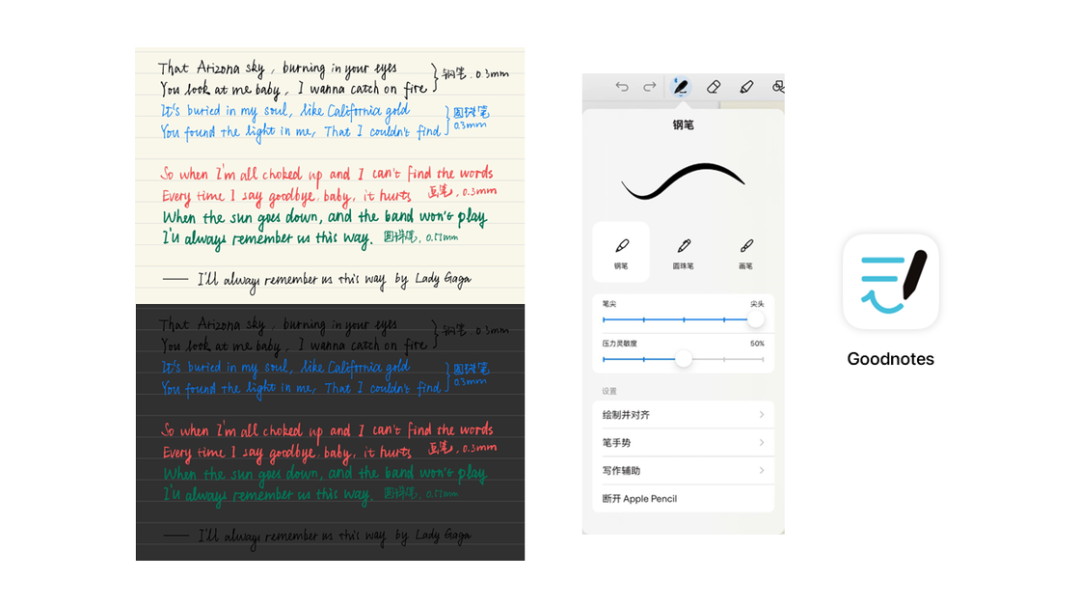 That Arizona sky, burning in your eyes
You look at me baby, I wanna catch on fire
钢笔. 0.3mm
It's buried in my soul, like California gold
You found the light in me, That I couldn't find
圆珠笔
0.3mm
So when I'm all choked up and I can't find the words
Every time I say goodbye, baby, it hurts 画笔. 0.3mm
When the sun goes down, and the band won't play
I'll always remember us this way. 圆珠笔, 0.51mm
—— I'll always remember us this way by Lady Gaga
That Arizona sky, burning in your eyes
You look at me baby, I wanna catch on fire
钢笔. 0.3mm
It's buried in my soul, like California gold
You found the light in me, That I couldn't find
圆珠笔
0.3mm
So when I'm all choked up and I can't find the words
Every time I say goodbye, baby, it hurts 画笔. 0.3mm
When the sun goes down, and the band won't play
I'll always remember us this way. 圆珠笔, 0.51mm
—— I'll always remember us this way by Lady Gaga
钢笔
钢笔 圆珠笔 画笔
笔尖 尖头
压力灵敏度 50%
设置
绘制并对齐
笔手势
写作辅助
断开 Apple Pencil
Goodnotes